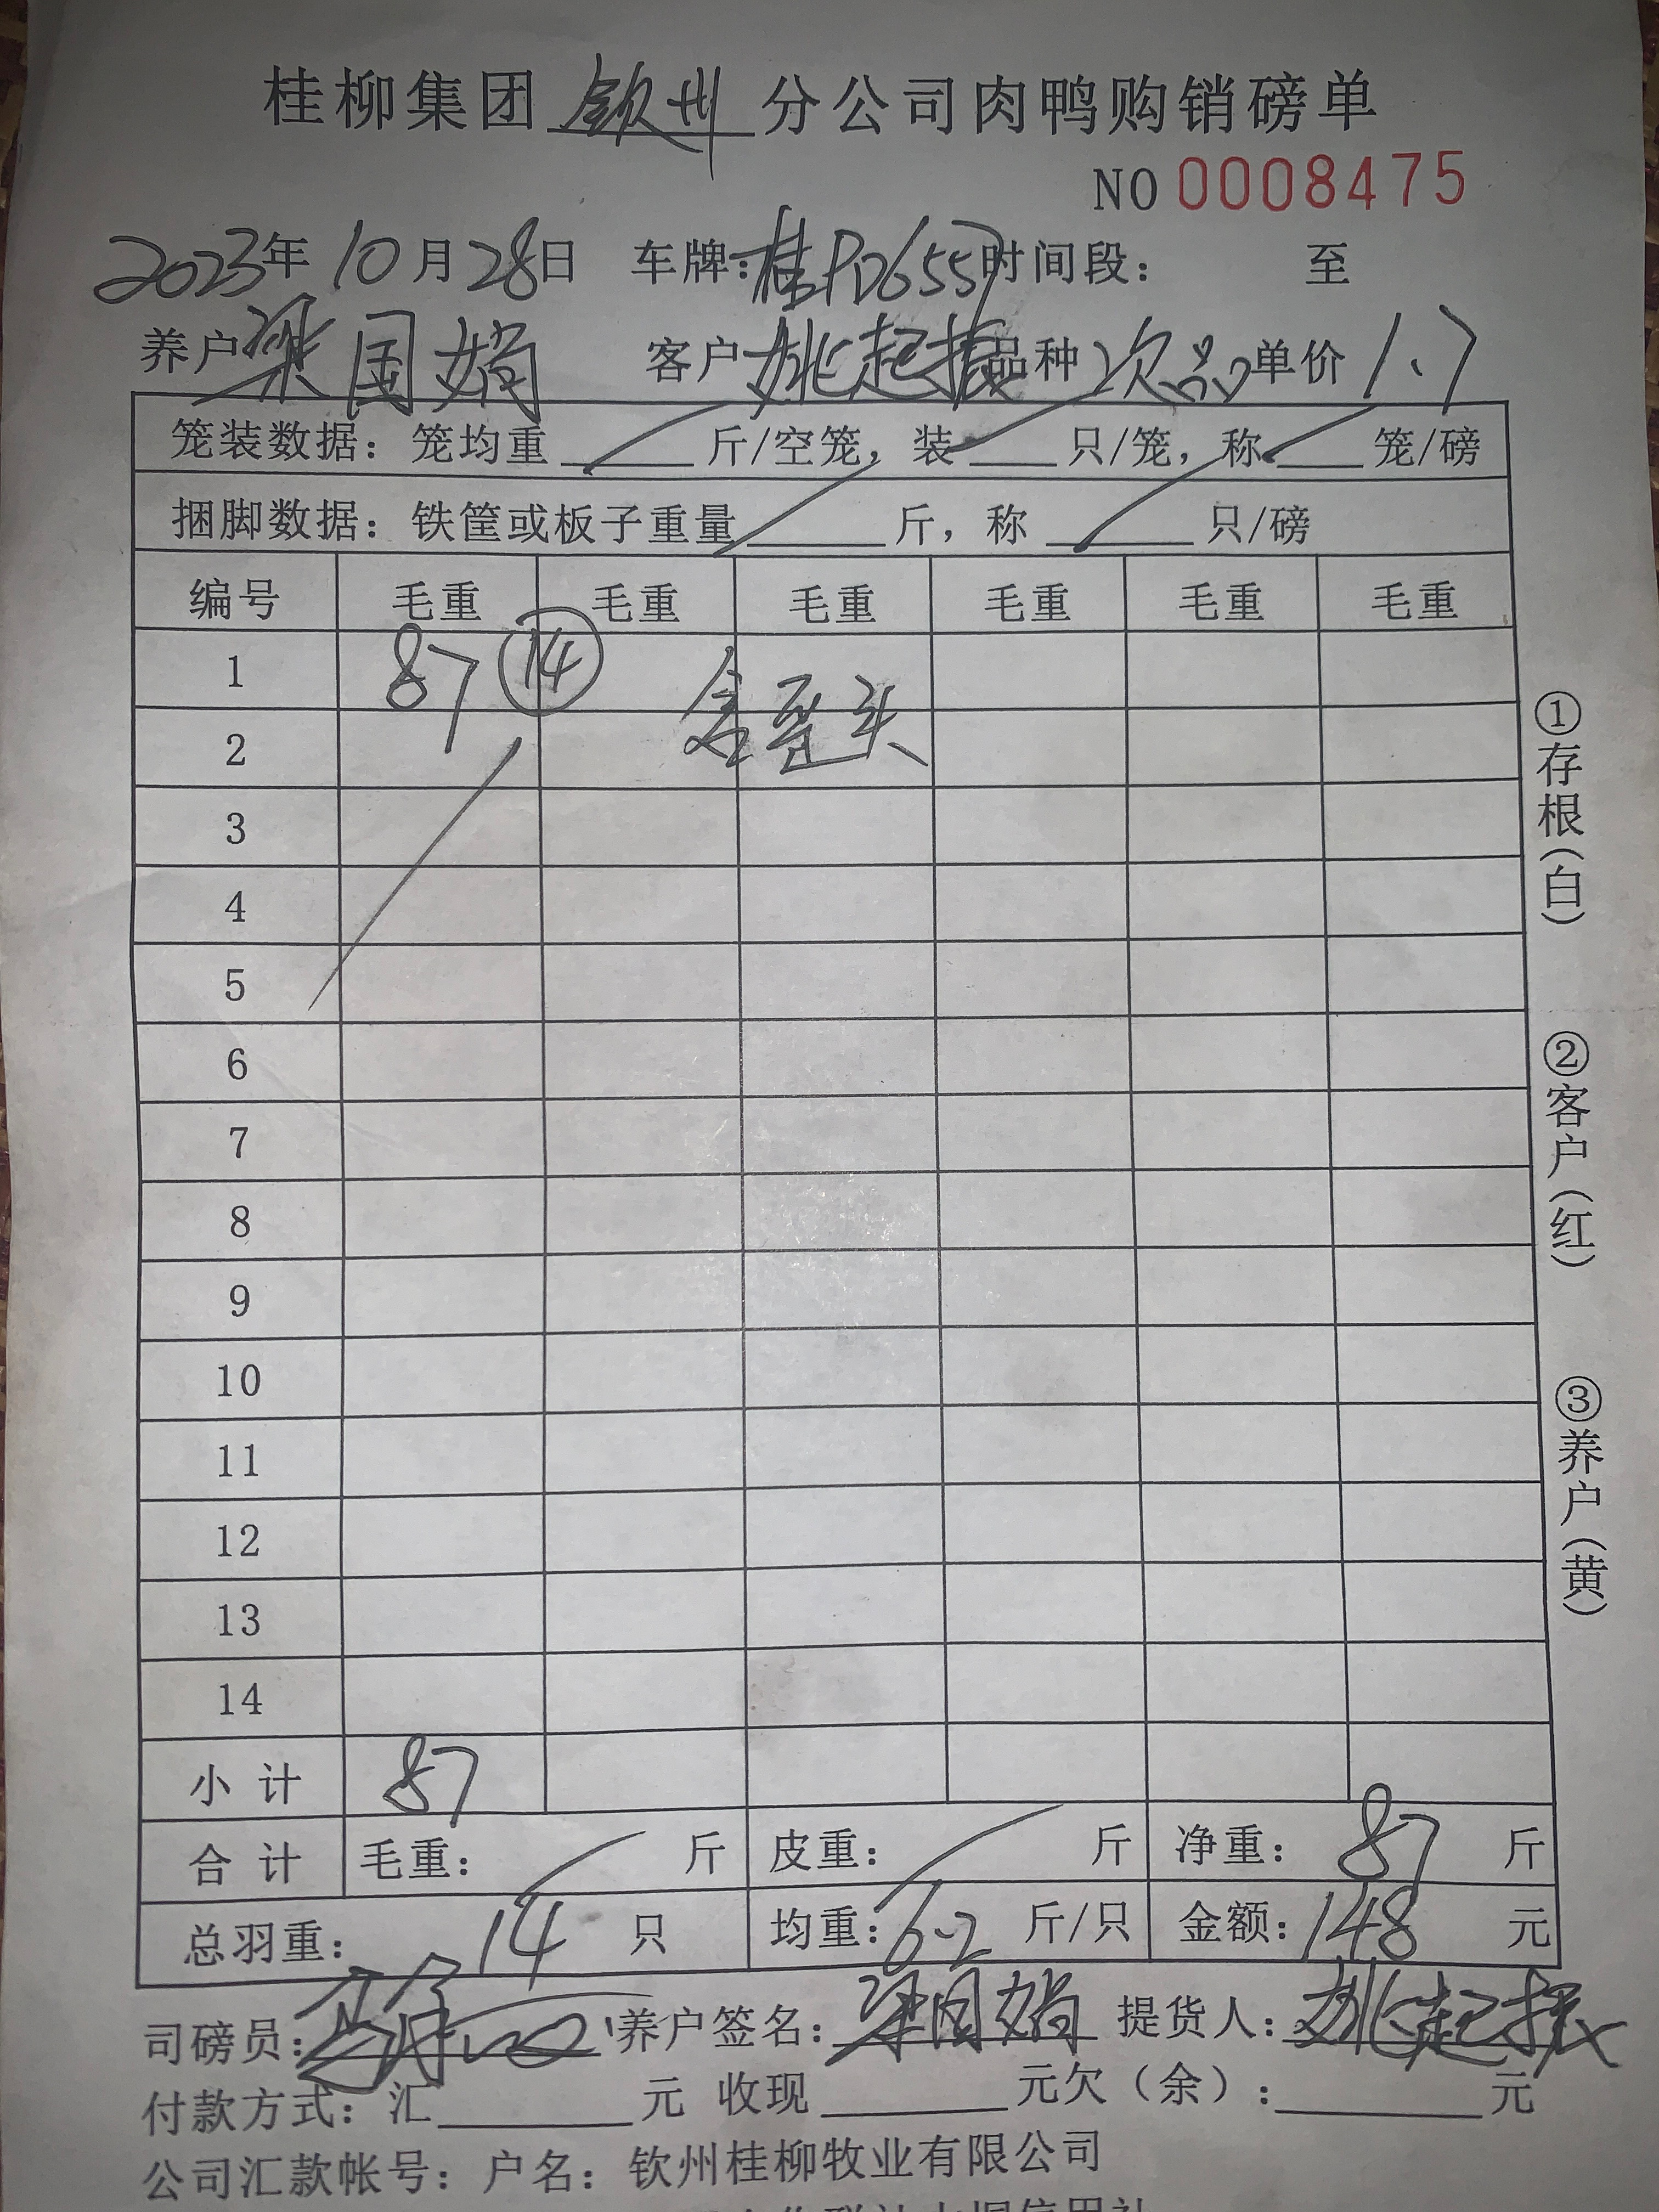 桂柳集团钦州分公司肉鸭购销磅单
NO 0008475
2023年10月28日 车牌:桂PD6557时间段: 至
养户梁国娟 客户姚起振品种次品单价1.7
笼装数据:笼均重 斤/空笼,装 只/笼,称 笼/磅
捆脚数据:铁筐或板子重量 斤,称 只/磅
编号 毛重 毛重 毛重 毛重 毛重 毛重
1 87 14
含歪头
2
3
4
5
6
7
8
9
10
11
12
13
14
小计 87
合计 毛重: 斤 皮重: 斤 净重: 87 斤
总羽重: 14 只 均重:6.2 斤/只 金额:148 元
司磅员: 养户签名:梁国娟 提货人:姚起振
付款方式:汇 元 收现 元欠(余): 元
公司汇款帐号:户名:钦州桂柳牧业有限公司
①存根(白)
②客户(红)
③养户(黄)